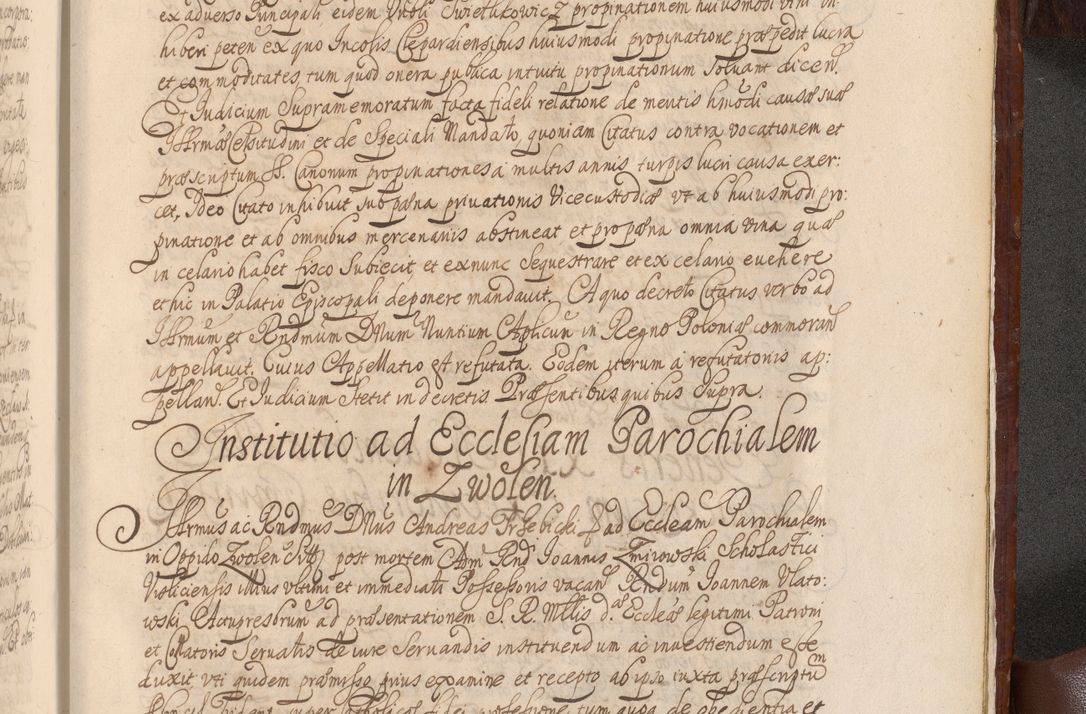 ex adverso Principali eidem Vnbli Swietlikowicz propinationem huiusmodi vini in:
hiberi peten ex quo Incolis Clepardiensibus huiusmodi propinatione præpedit lucra
et commoditates tum quod onera publica intuitu propinationum Soluant dicen.
Et Judicium Supramemoratum facta fideli relatione de meritis hmodi causæ suæ
Illrmæ Celsitudini et de Speciali Mandato, quoniam Citatus contra vocationem et
præscriptum SS. Canonum propinationes a multis annis turpis lucri causa exer:
cet, Ideo Citato inhibuit sub pæna priuationis Vicecustodiæ vt ab huiusmodi pro:
pinatione et ab omnibus mercenariis abstineat et pro pæna omnia vina quæ
in celario habet fisco Subiecit et ex nunc Sequestrare et ex celario euehere
et hic in Palatio Episcopali deponere mandauit. A quo decreto Citatus verbo ad
Illrmum et Rndmum DNum Nuntium Aplicum in Regno Poloniæ commoran
appellauit. Cuius Appellatio est refutata. Eodem iterum a refutatoriis ap:
pellan. Et Judicium Stetit in decretis Præsentibus quibus Supra.
Institutio ad Ecclesiam Parochialem
in Zwolen.
Illrmus ac Rndmus DNus Andreas Trzebicki Ep ad Eccleam Parochialem
in Oppido Zwolen post mortem Adm Rnd Joannis Zmirowski Scholastici
Visliciensis illius vltimi et immediati Possessoris vacan Rndum Joannem Vlato:
wski Actupresbrum ad præsentationem S. R. Mttis d.æ Eccleæ legitimi Patroni
et Collatoris Servatis de iure Seruandis instituendum ac inuestiendum esse
duxit, vti quidem præmisso prius examine et recepto ab ipso iuxta præscriptum
super Catholicæ fidei professione tum quoq de obedientia et